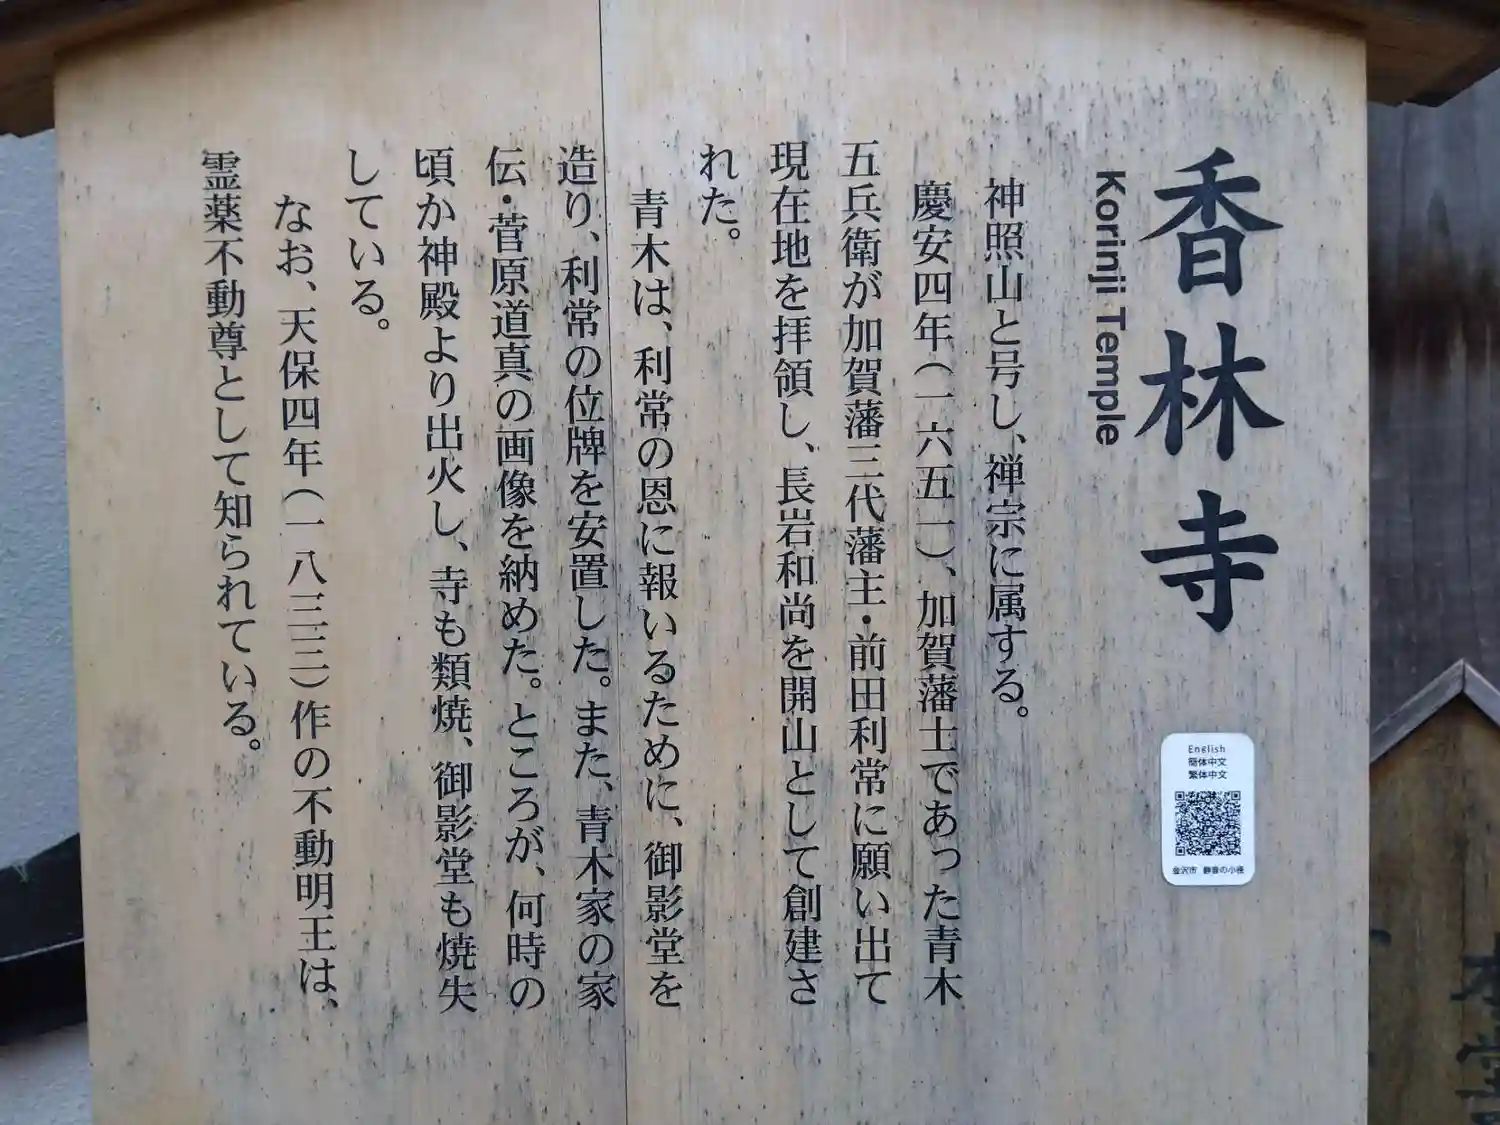 香林寺
Korinji Temple
神照山と号し、禅宗に属する。
慶安四年(一六五一)、加賀藩士であった青木
五兵衛が加賀藩三代藩主・前田利常に願い出て
現在地を拝領し、長岩和尚を開山として創建さ
れた。
青木は、利常の恩に報いるために、御影堂を
造り、利常の位牌を安置した。また、青木家の家
伝・菅原道真の画像を納めた。ところが、何時の
頃か神殿より出火し、寺も類焼、御影堂も焼失
している。
なお、天保四年(一八三三)作の不動明王は、
霊薬不動尊として知られている。
English
簡体中文
繁体中文
金沢市 静音の小径